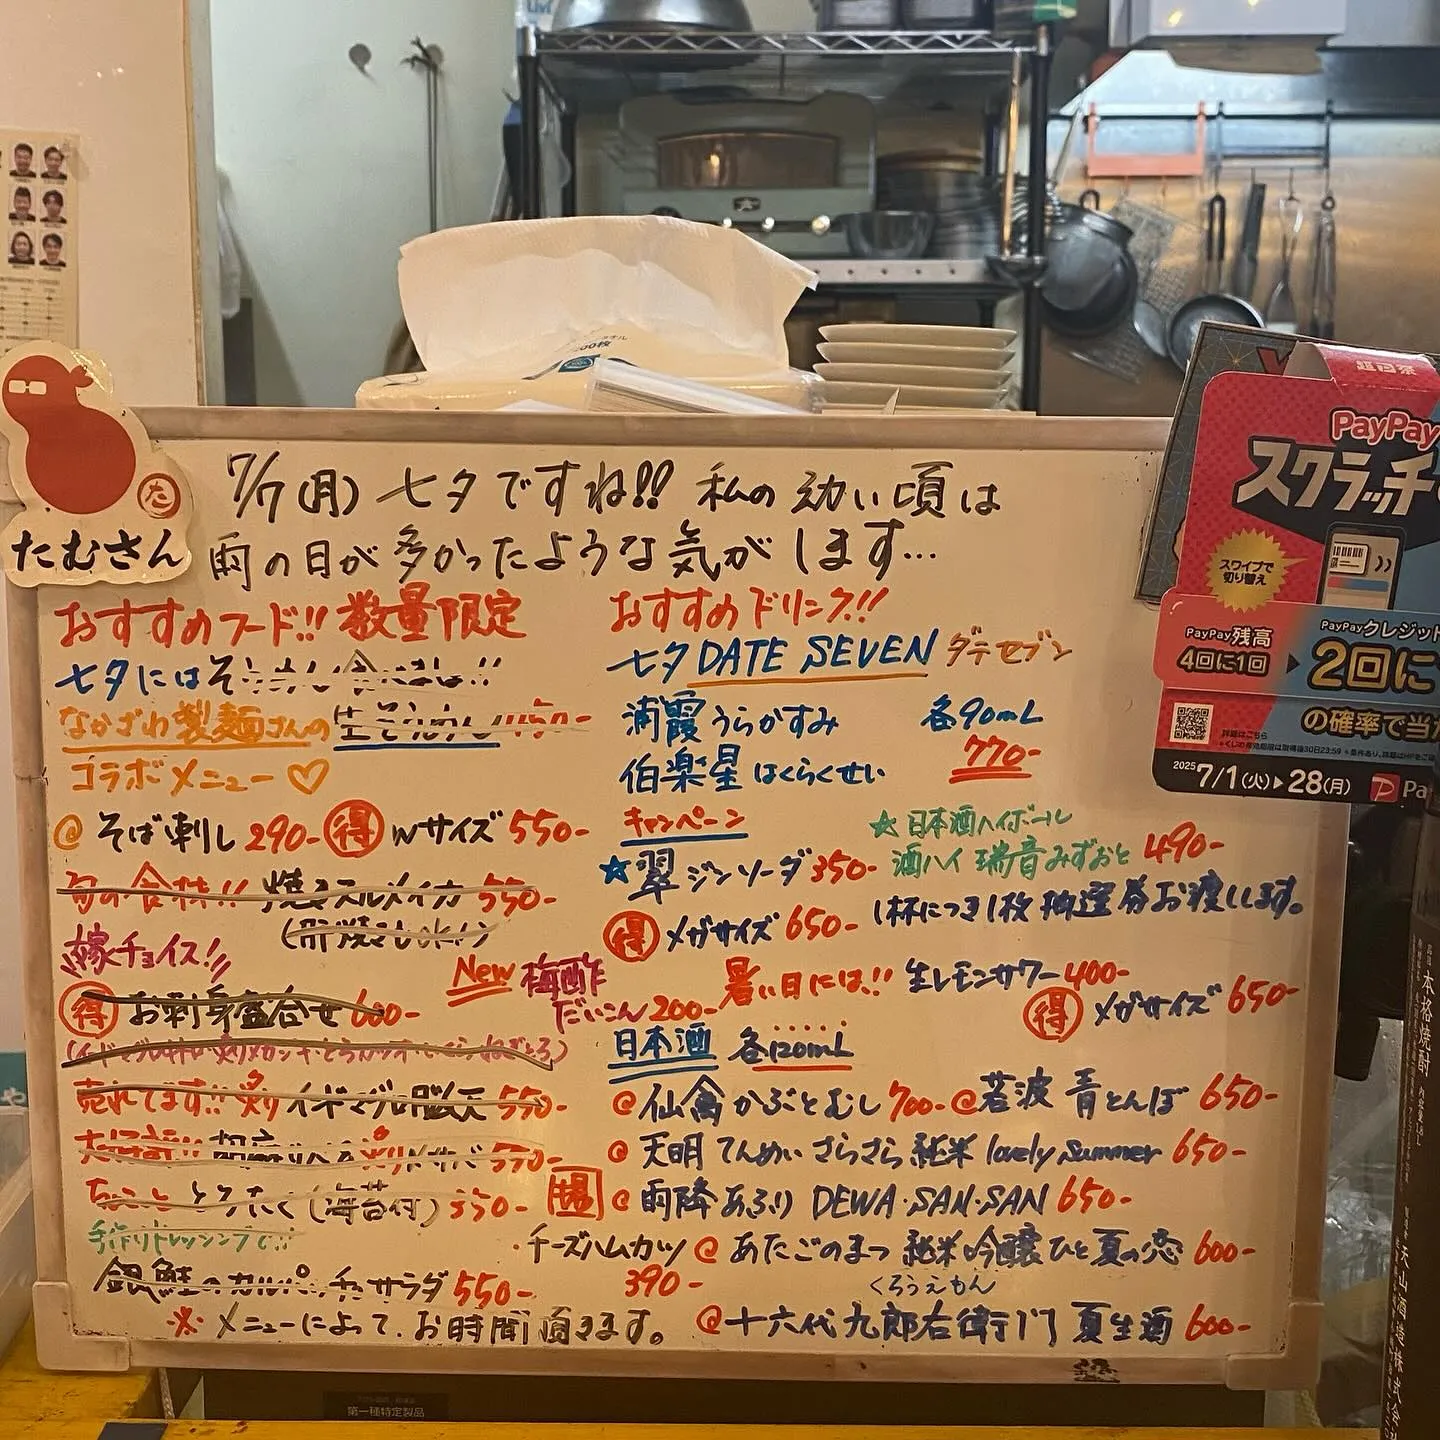 たむさん
た
7/7(月) 七夕ですね!! 私の幼い頃は
雨の日が多かったような気がします…
おすすめフード!! 数量限定
七夕にはそうめん
なかざわ製麺さんの 生そうめん
コラボメニュー♡
@ そば刺し 290- 得 Wサイズ 550-
旬の食材!! 焼きスルメイカ 550-
嫁チョイス!!
得 お刺身盛合せ 600-
New 梅酢
だいこん 200-
売れてます!! 炙り 550-
炙り 550-
(海苔付) 550-
手作りドレッシングで!!
銀鮭のカルパッチョサラダ 550-
・チーズハムカツ
390-
※メニューによって、お時間頂きます。
おすすめドリンク!!
七夕 DATE SEVEN ダテセブン
浦霞 うらかすみ 各90mL
伯楽星 はくらくせい 770-
キャンペーン
☆翠ジンソーダ 350-
得 メガサイズ 650-
☆日本酒ハイボール
酒ハイ 瑞音みずおと 490-
1杯につき1枚 抽選券お渡しします。
暑い日には!! 生レモンサワー 400-
得 メガサイズ 650-
日本酒 各120mL
@ 仙禽 かぶとむし 700- @ 若波 青とんぼ 650-
@ 天明 てんめい さらさら純米 lovely summer 650-
@ 雨降 あふり DEWA・SAN・SAN 650-
@ あたごのまつ 純米吟醸 ひと夏の恋 600-
くろうえもん
@ 十六代九郎右衛門 夏生酒 600-
PayPay
スクラッチ
スワイプで
切り替え
PayPay残高
4回に1回
PayPayクレジット
2回に
の確率で当
2025 7/1(火)▶28(月)
第一種特定製品
本格焼酎